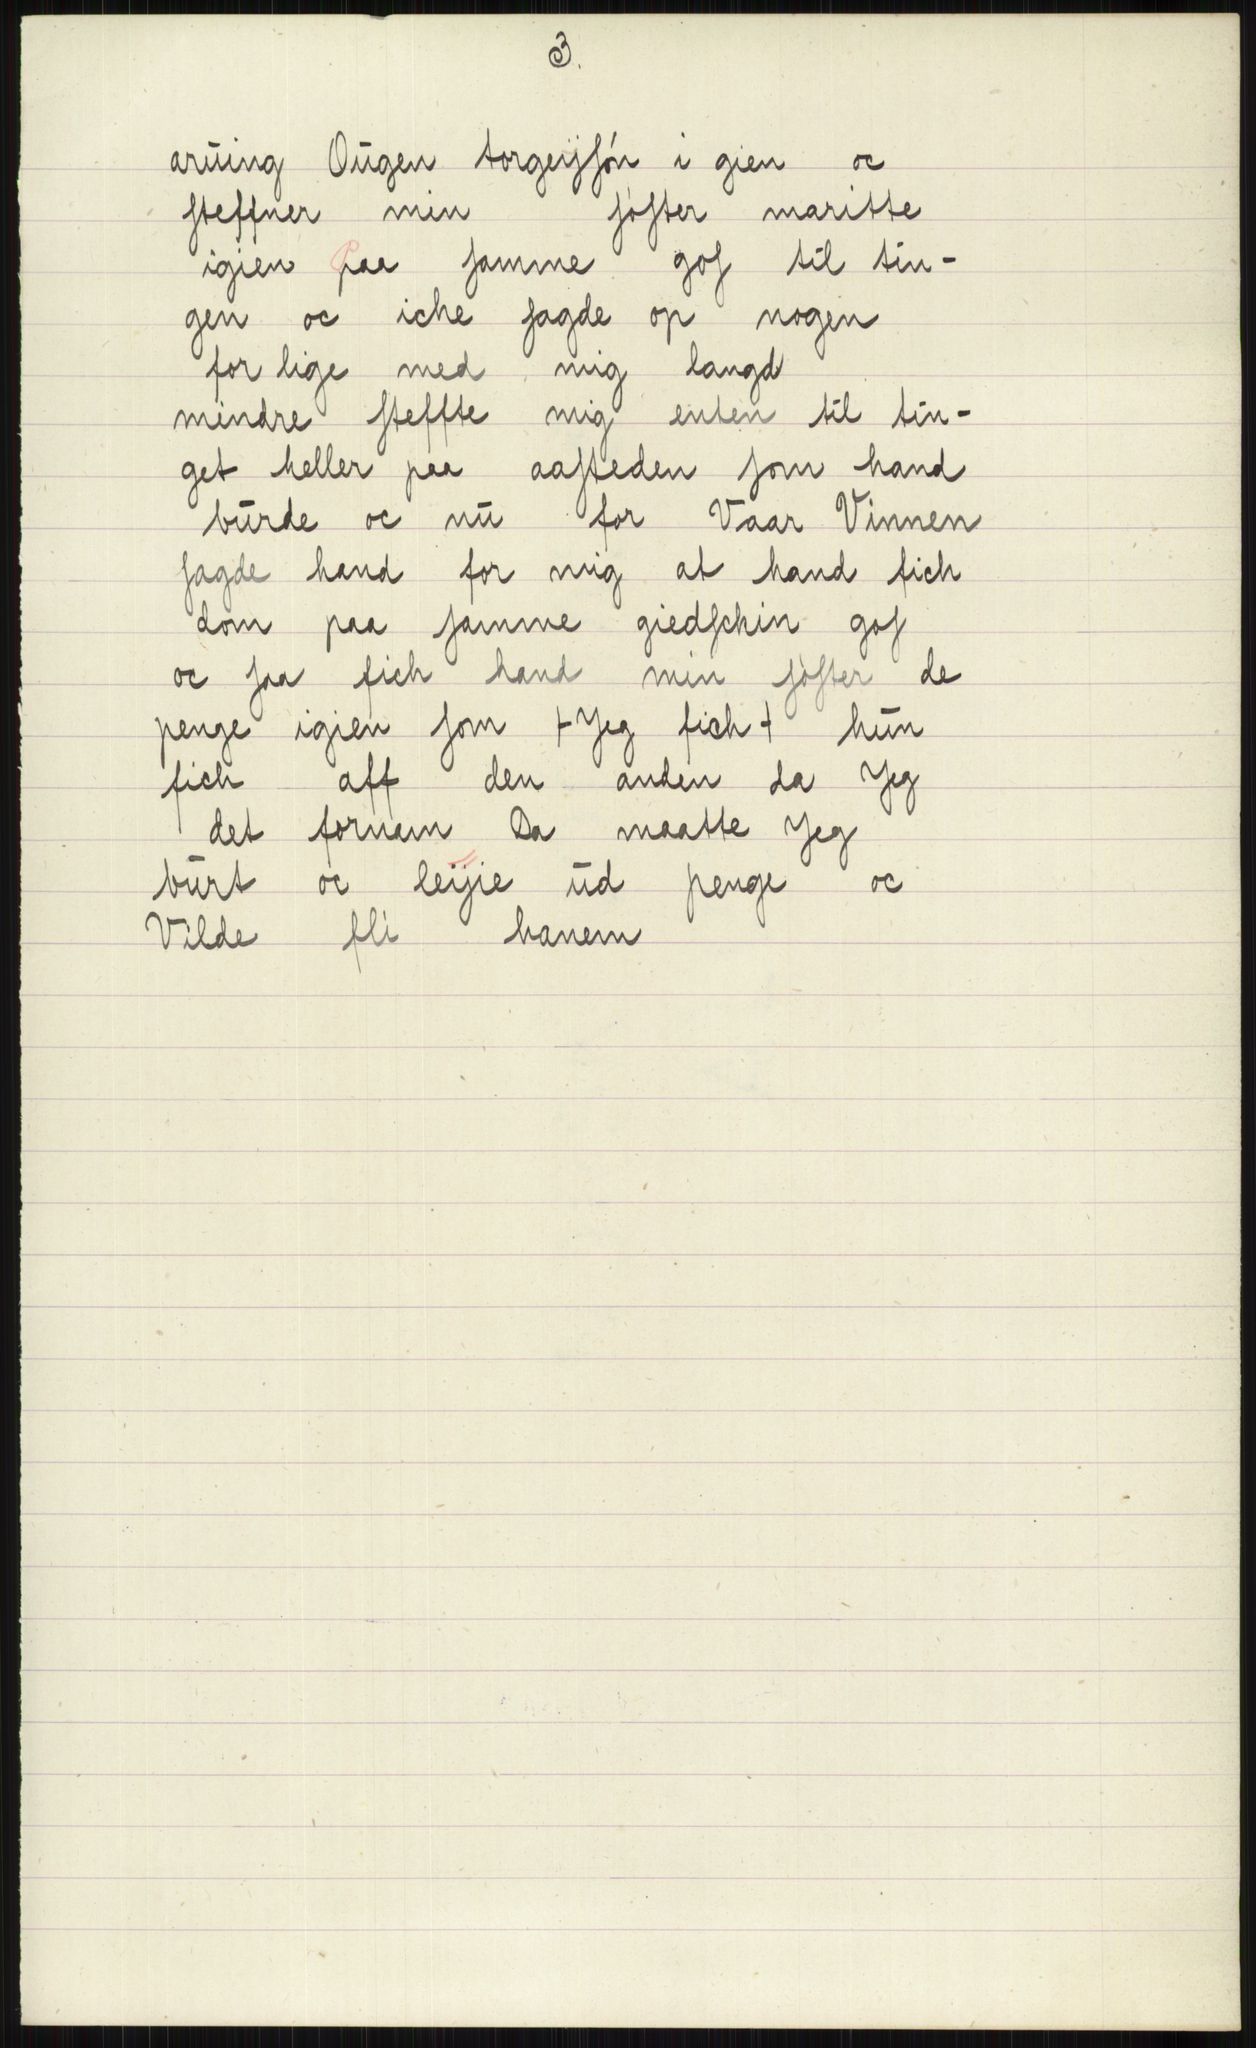 3.
arūing Oūgen torgeijsøn i gien oc
steffner min søster maritte
igien paa samme gos til tin-
gen oc icke sagde op nogen
for lige med mig langd
mindre steffte mig enten til tin-
get heller paa aasteden som hand
būrde oc nū for Vaar Vinnen
sagde hand for mig at hand fick
dom paa samme giedschin gos
oc saa fick hand min søster de
penge igien som + Jeg fick + hūn
fick aff den anden da Jeg
det fornam Da maatte Jeg
būrt oc leijie ūd penge oc
Vilde fli hanem